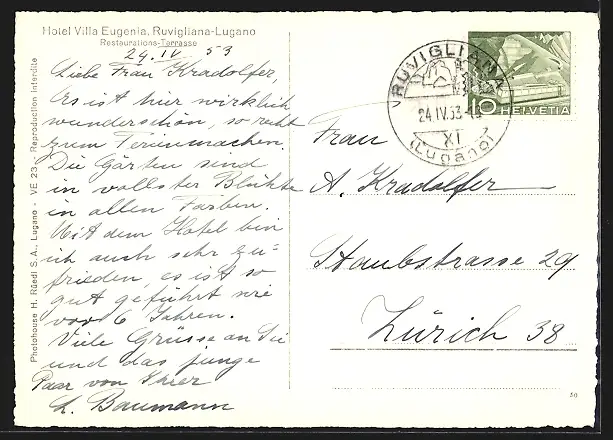 Hotel Villa Eugenia, Ruvigliana-Lugano
Restaurations-Terrasse
24. IV 53
Liebe Frau Kradolfer,
Es ist hier wirklich
wunderschön, so recht
zum Ferienmachen.
Die Gärten sind
in vollster Blühte
in allen Farben.
Mit dem Hotel bin
ich auch sehr zu-
frieden, es ist so
gut geführt wie
vor 6 Jahren.
Viele Grüsse an Sie
und das junge
Paar von Ihrer
L. Baumann
Photohouse H. Rüedi S.A., Lugano - VE 23 - Reproduction interdite
RUVIGLIANA
24 IV. 53
XI
(Lugano)
10 HELVETIA
Frau
A. Kradolfer
Staubstrasse 29
Zürich 38